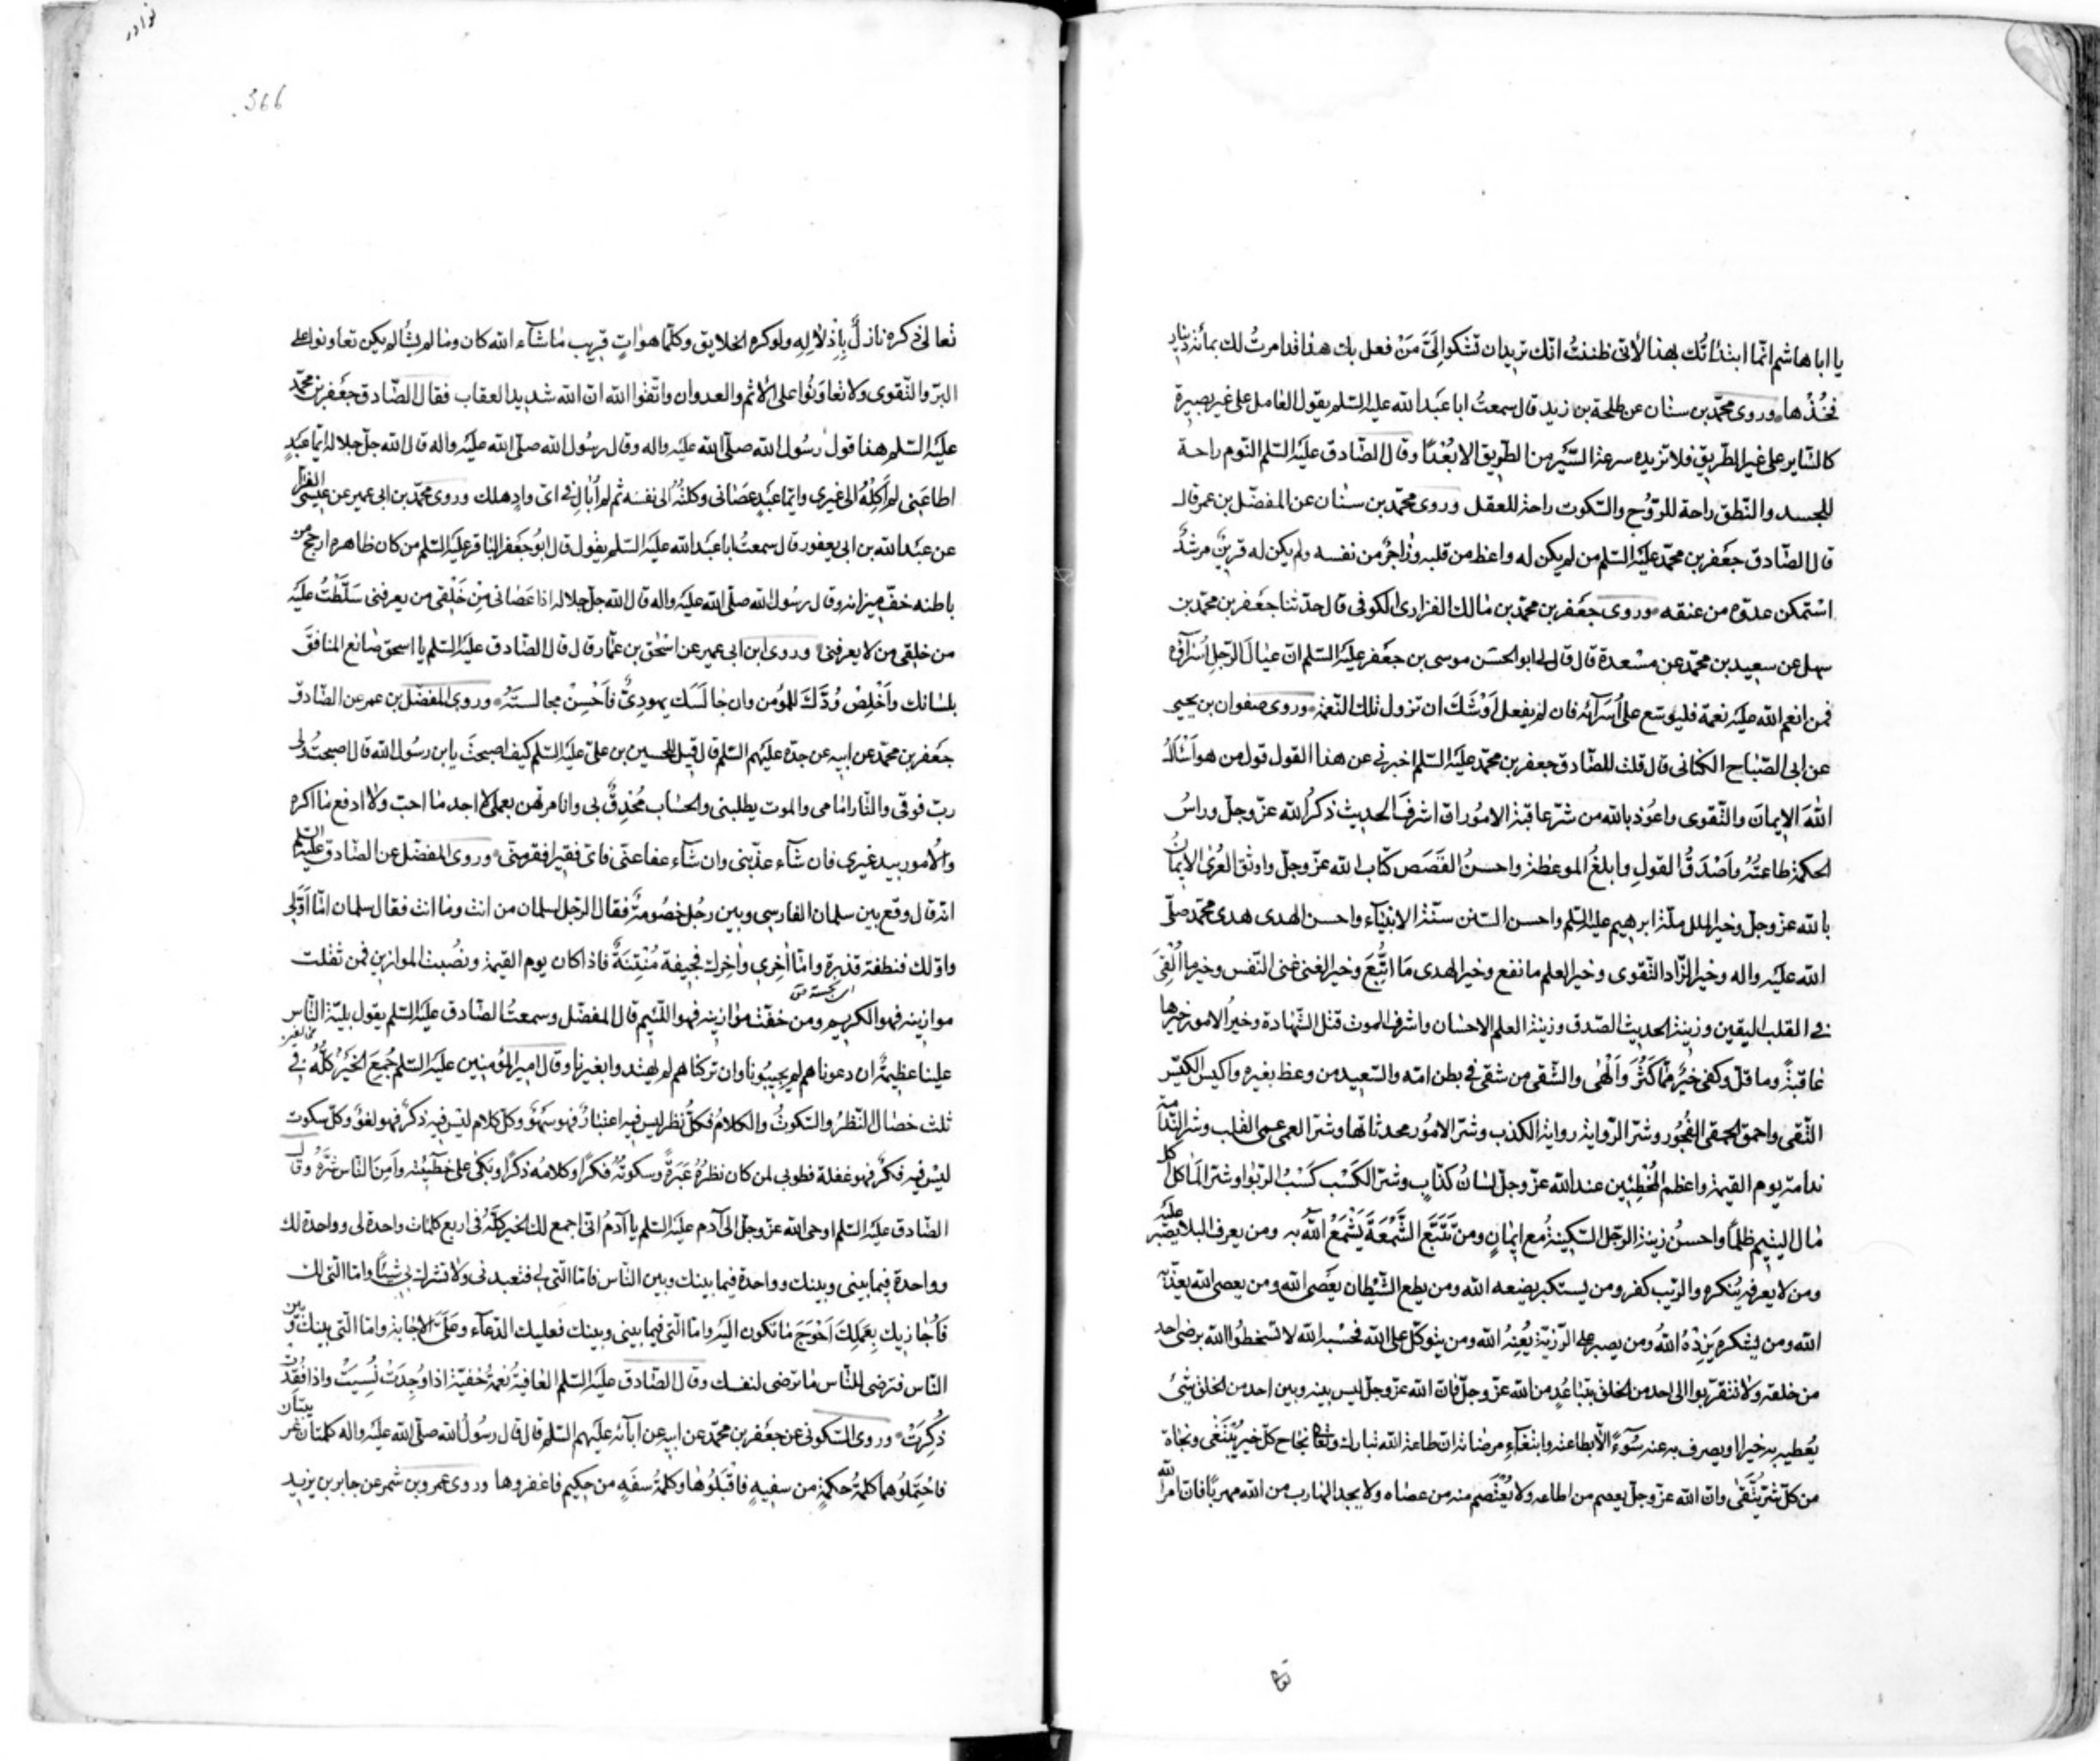 يا ابا هاشم انّما ابتدأتُك بهذا لأنّى ظننتُ انّك تريد ان تشكو الىَّ مَنْ فعل بك هذا قد امرتُ لك بمائة دينار
فخُذْها وروى محمّد بن سنان عن طلحة بن زيد قال سمعتُ ابا عبد الله عليه السّلم يقول العامل على غير بصيرة
كالسّاير على غير الطّريق فلا تزيده سرعة السَّيْر من الطريق الا بُعْدًا وقال الصّادق عليه السّلم النّوم راحة
للجسد والنّطق راحة للرّوُح والسّكوت راحة للعقل وروى محمّد بن سنان عن المفضّل بن عمر قال
قال الصّادق جعفر بن محمّد عليه السّلم من لم يكن له واعظ من قلبه وزاجرٌ من نفسه ولم يكن له قرينٌ مرشدٌ
استمكن عدوّه من عنقه وروى جعفر بن محمّد بن مالك الفزارى الكوفى قال حدّثنا جعفر بن محمّد بن
سهل عن سعيد بن محمّد عن مسْعدة قال قال لى ابو الحسَن موسى بن جعفر عليه السّلم انّ عيالَ الرّجل اُسَرآؤه
فمن انعم الله عليه نعمة فليوسّع على اُسَرآئه فان لم يفعل اَوْشَكَ ان تزول تلك النّعمة وروى صفوان بن يحيى
عن ابى الصّباح الكنانى قال قلت للصّادق جعفر بن محمّد عليه السّلم اخبرنى عن هذا القول قول من هو اَسْألُ
اللهَ الايمانَ والتّقوى واعوُذ بالله من شرّ عاقبة الامُور انّ اشرفَ الحديث ذكرُ الله عزّ وجلّ وراسُ
الحكمة طاعتُهُ واَصْدَقُ القولِ وابلغُ الموعظة واحسنُ القَصَص كتاب الله عزّ وجلّ واوثق العُرى الايمانُ
بالله عزّ وجلّ وخير الملل ملّة ابرهيم عليه السّلم واحسن السّنن سنّة الانبيآء واحسن الهدى هدى محمّد صلّى
الله عليه واله وخير الزّاد التّقوى وخير العلم ما نفع وخير الهدى مَا اتُّبِعَ وخير الغنى غنى النّفس وخير ما اُلْقِىَ
فى القلب اليقين وزينة الحديث الصّدق وزينة العلم الاحسان واشرف الموت قتل الشّهادة وخيرُ الامور خيرها
عاقبةً وما قلّ وكفى خيرٌ ممّا كَثُرَ واَلْهٰى والشّقى من شقى فى بطن امّه والسّعيد من وعظ بغيره واكيس الكيّس
التّقى واحمق الحمقى الفجُور وشرّ الرّواية رواية الكذب وشرّ الامُور محدثاتها وشرّ العمى عمى القلب وشرّ النّدامة
ندامة يوم القيمة واعظم المُخْطئين عند الله عزّ وجلّ لسانُ كذّابٍ وشرّ الكَسْب كَسْبُ الرّبوا وشرّ المأكل اكل
مال اليتيم ظلمًا واحسنُ زينة الرّجل السّكينةُ مع ايمانٍ ومن تَتَبَّعَ السُّمْعَةَ يَسْمَعُ اللهُ به ومن يعرف البلا يصبر عليه
ومن لا يعرفه يُنكره والرّيب كفر ومن يستكبر يضعه الله ومن يطع الشّيْطان يعْصى الله ومن يعصى الله يعذّبه
الله ومن يشكره يَزِدْهُ اللهُ ومن يصبر على الرّزيّة يُعِنْهُ الله ومن يتوكّل على الله فحَسْبُه الله لا تسخطُوا الله برضى احد
من خلقه ولا تتقرّبوا الى احد من الخلق بتباعُدٍ من الله عزّ وجلّ فانّ الله عزّ وجلّ ليس بينه وبين احد من الخلق شىء
يُعطيه به خيرًا او يصرف به عنه سُوٓءً الّا بطاعته وابتغآءِ مرضاته انّ طاعة الله تبارك وتعا نجاح كلّ خير يُبْتَغى ونجاة
من كلّ شرّ يُتّقى وانّ الله عزّ وجلّ يعصم من اطاعه ولا يُعْتَصم منه من عصاه ولا يجد الهارب من الله مهربًا فانّ امر الله
تعا
نوادر
366
تعالى ذكره نازلٌ بِاِذْلالِهِ ولو كره الخلايق وكلّما هو اٰتٍ قريب ما شآء الله كان وما لم يشأ لم يكن تعاونوا على
البرّ والتّقوى ولا تعاوَنُوا على الاثم والعدوان واتّقوا الله انّ الله شديد العقاب فقال الصّادق جعفر بن محمّد
عليه السّلم هذا قول رسُول الله صلّى الله عليه واله وقال رسُول الله صلّى الله عليه واله قال الله جلّ جلاله ايّما عبدٍ
اطاعنى لم اَكِلْهُ الى غيرى وايّما عبدٍ عصانى وكلتُهُ الى نفسه ثم لم اُبالِ فى اىّ وادٍ هلك وروى محمّد بن ابى عمير عن عيسى الفرّا
عن عبد الله بن ابى يعفور قال سمعتُ ابا عبد الله عليه السّلم يقول قال ابوُ جعفر الباقر عليه السّلم من كان ظاهره ارجح من
باطنه خفّ ميزانه وقال رسُول الله صلّى الله عليه واله قال الله جلّ جلاله اذا عصانى مِنْ خَلْقى من يعرفنى سَلَّطْتُ عليه
من خلقى من لا يعرفنى وروى ابن ابى عمير عن اسْحٰق بن عمّار قال قال الصّادق عليه السّلم يا اسحق صانع المنافقَ
بلسانك واَخْلِصْ وُدَّكَ للمؤمن وان جالَسَك يهودىٌّ فاَحْسِنْ مجالستَهُ وروى المفضّل بن عمر عن الصّادق
جعفر بن محمّد عن ابيه عن جدّه عليهم السّلم قال قيل للحسين بن علىّ عليه السّلم كيف اصبحتَ يا بن رسُول الله قال اصبحتُ ولى
ربّ فوقى والنّار امامى والموت يطلبنى والحساب مُحْدِقٌ بى وانا مرتهن بعملى لا اجد ما احبّ ولا ادفع ما اكره
والاُمور بيد غيرى فان شآء عذّبنى وان شآء عفا عنّى فاىّ فقير افقر منّى وروى المفضّل عن الصّادق عليه السّلم
انّه قال وقع بين سلمان الفارسى وبين رجُل خصُومةٌ فقال الرّجل لسلمان من انت وما انت فقال سلمان امّا اوّلى
واوّلك فنطفة قذرة وامّا اٰخِرى واٰخِرك فجيفة مُنْتِنَةٌ فاذا كان يوم القيمة ونصُبت الموازين فمن ثقلت
موازينه فهو الكريم ومن خفّت موازينه فهو اللّئيم قال المفضّل وسمعتُ الصّادق عليه السّلم يقول بليّة النّاس
علينا عظيمةٌ ان دعوناهم لم يجيبُونا وان تركناهم لم يهتدوا بغيرنا وقال امير المؤمنين عليه السّلم جُمِعَ الخَيْرُ كلُّهُ فى
ثلث خصال النّظرُ والسّكوتُ والكلامُ فكلُّ نظر ليس فيه اعتبارٌ فهو سَهْوٌ وكلّ كلام ليس فيه ذكرٌ فهو لغوٌ وكلّ سكوت
ليْس فيه فكرٌ فهو غفلة فطوبى لمن كان نظرُهُ عَبَرَةً وسكوتُهُ فكرًا وكلامُه ذكرًا وبكى على خطيئته واَمِنَ النّاس شَرَّهُ وقال
الصّادق عليه السّلم اوحى الله عزّ وجلّ الى آدم عليه السّلم يا آدمُ انّى اجمع لك الخير كلَّهُ فى اربع كلمات واحدة لى وواحدة لك
وواحدة فيما بينى وبينك وواحدة فيما بينك وبين النّاس فامّا الّتى لى فتعبدنى ولا تشرك بى شيئًا وامّا الّتى لك
فَاُجازيك بِعَمَلِكَ اَحْوَجَ ما تكون اليه وامّا الّتى فيما بينى وبينك فعليك الدّعآء وعَلَىَّ الاجابة وامّا الّتى بينك وبين
النّاس فترضى للنّاس ما ترضى لنفسك وقال الصّادق عليه السّلم العافيةُ نعمةٌ خفيّة اذا وُجِدَتْ نُسِيَتْ واذا فُقِدَتْ
ذُكِرَتْ وروى السّكونى عن جعفر بن محمّد عن ابيه عن ابآئه عليهم السّلم قال قال رسُولُ الله صلّى الله عليه واله كلمتان غريبتان
فاحْتَمِلُوهما كلمةُ حكمةٍ من سفيهٍ فاقْبَلُوُها وكلمةُ سفَهٍ من حكيم فاغفروها وروى عمرو بن شمر عن جابر بن يزيد